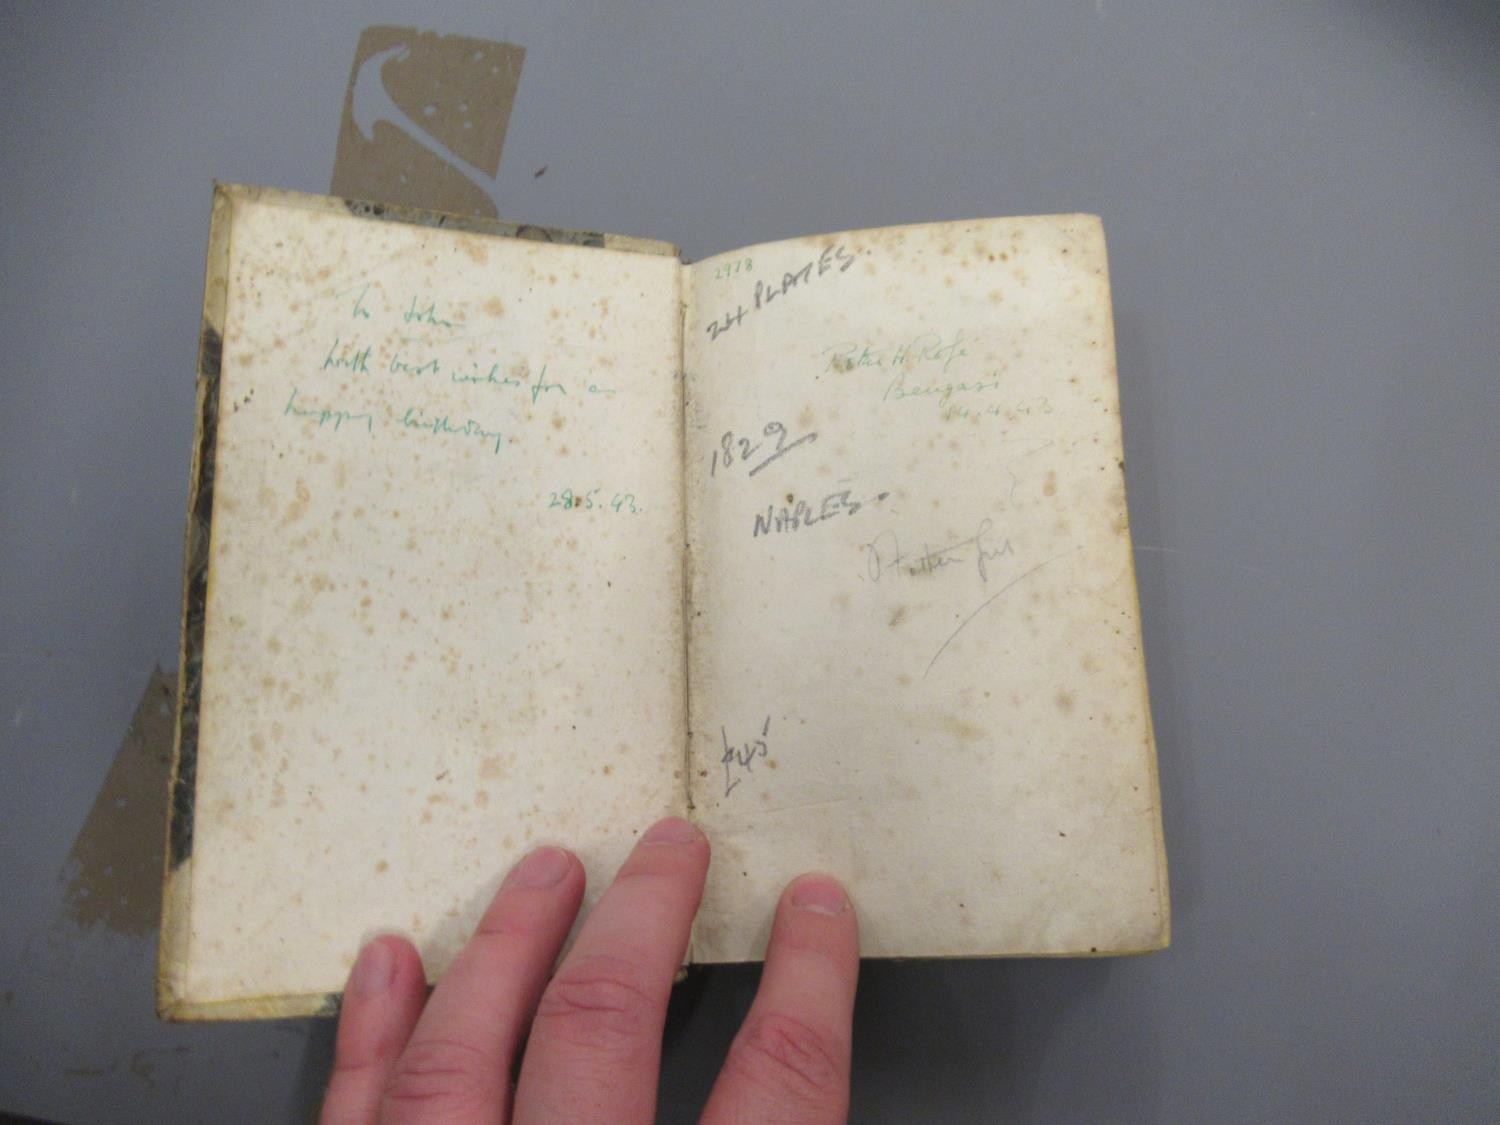 To John
with best wishes for a
happy birthday
28.5.43.
2978
24 PLATES.
Peter H. Rofé
Bengasi
14.4.43
1829
NAPLES.
£45